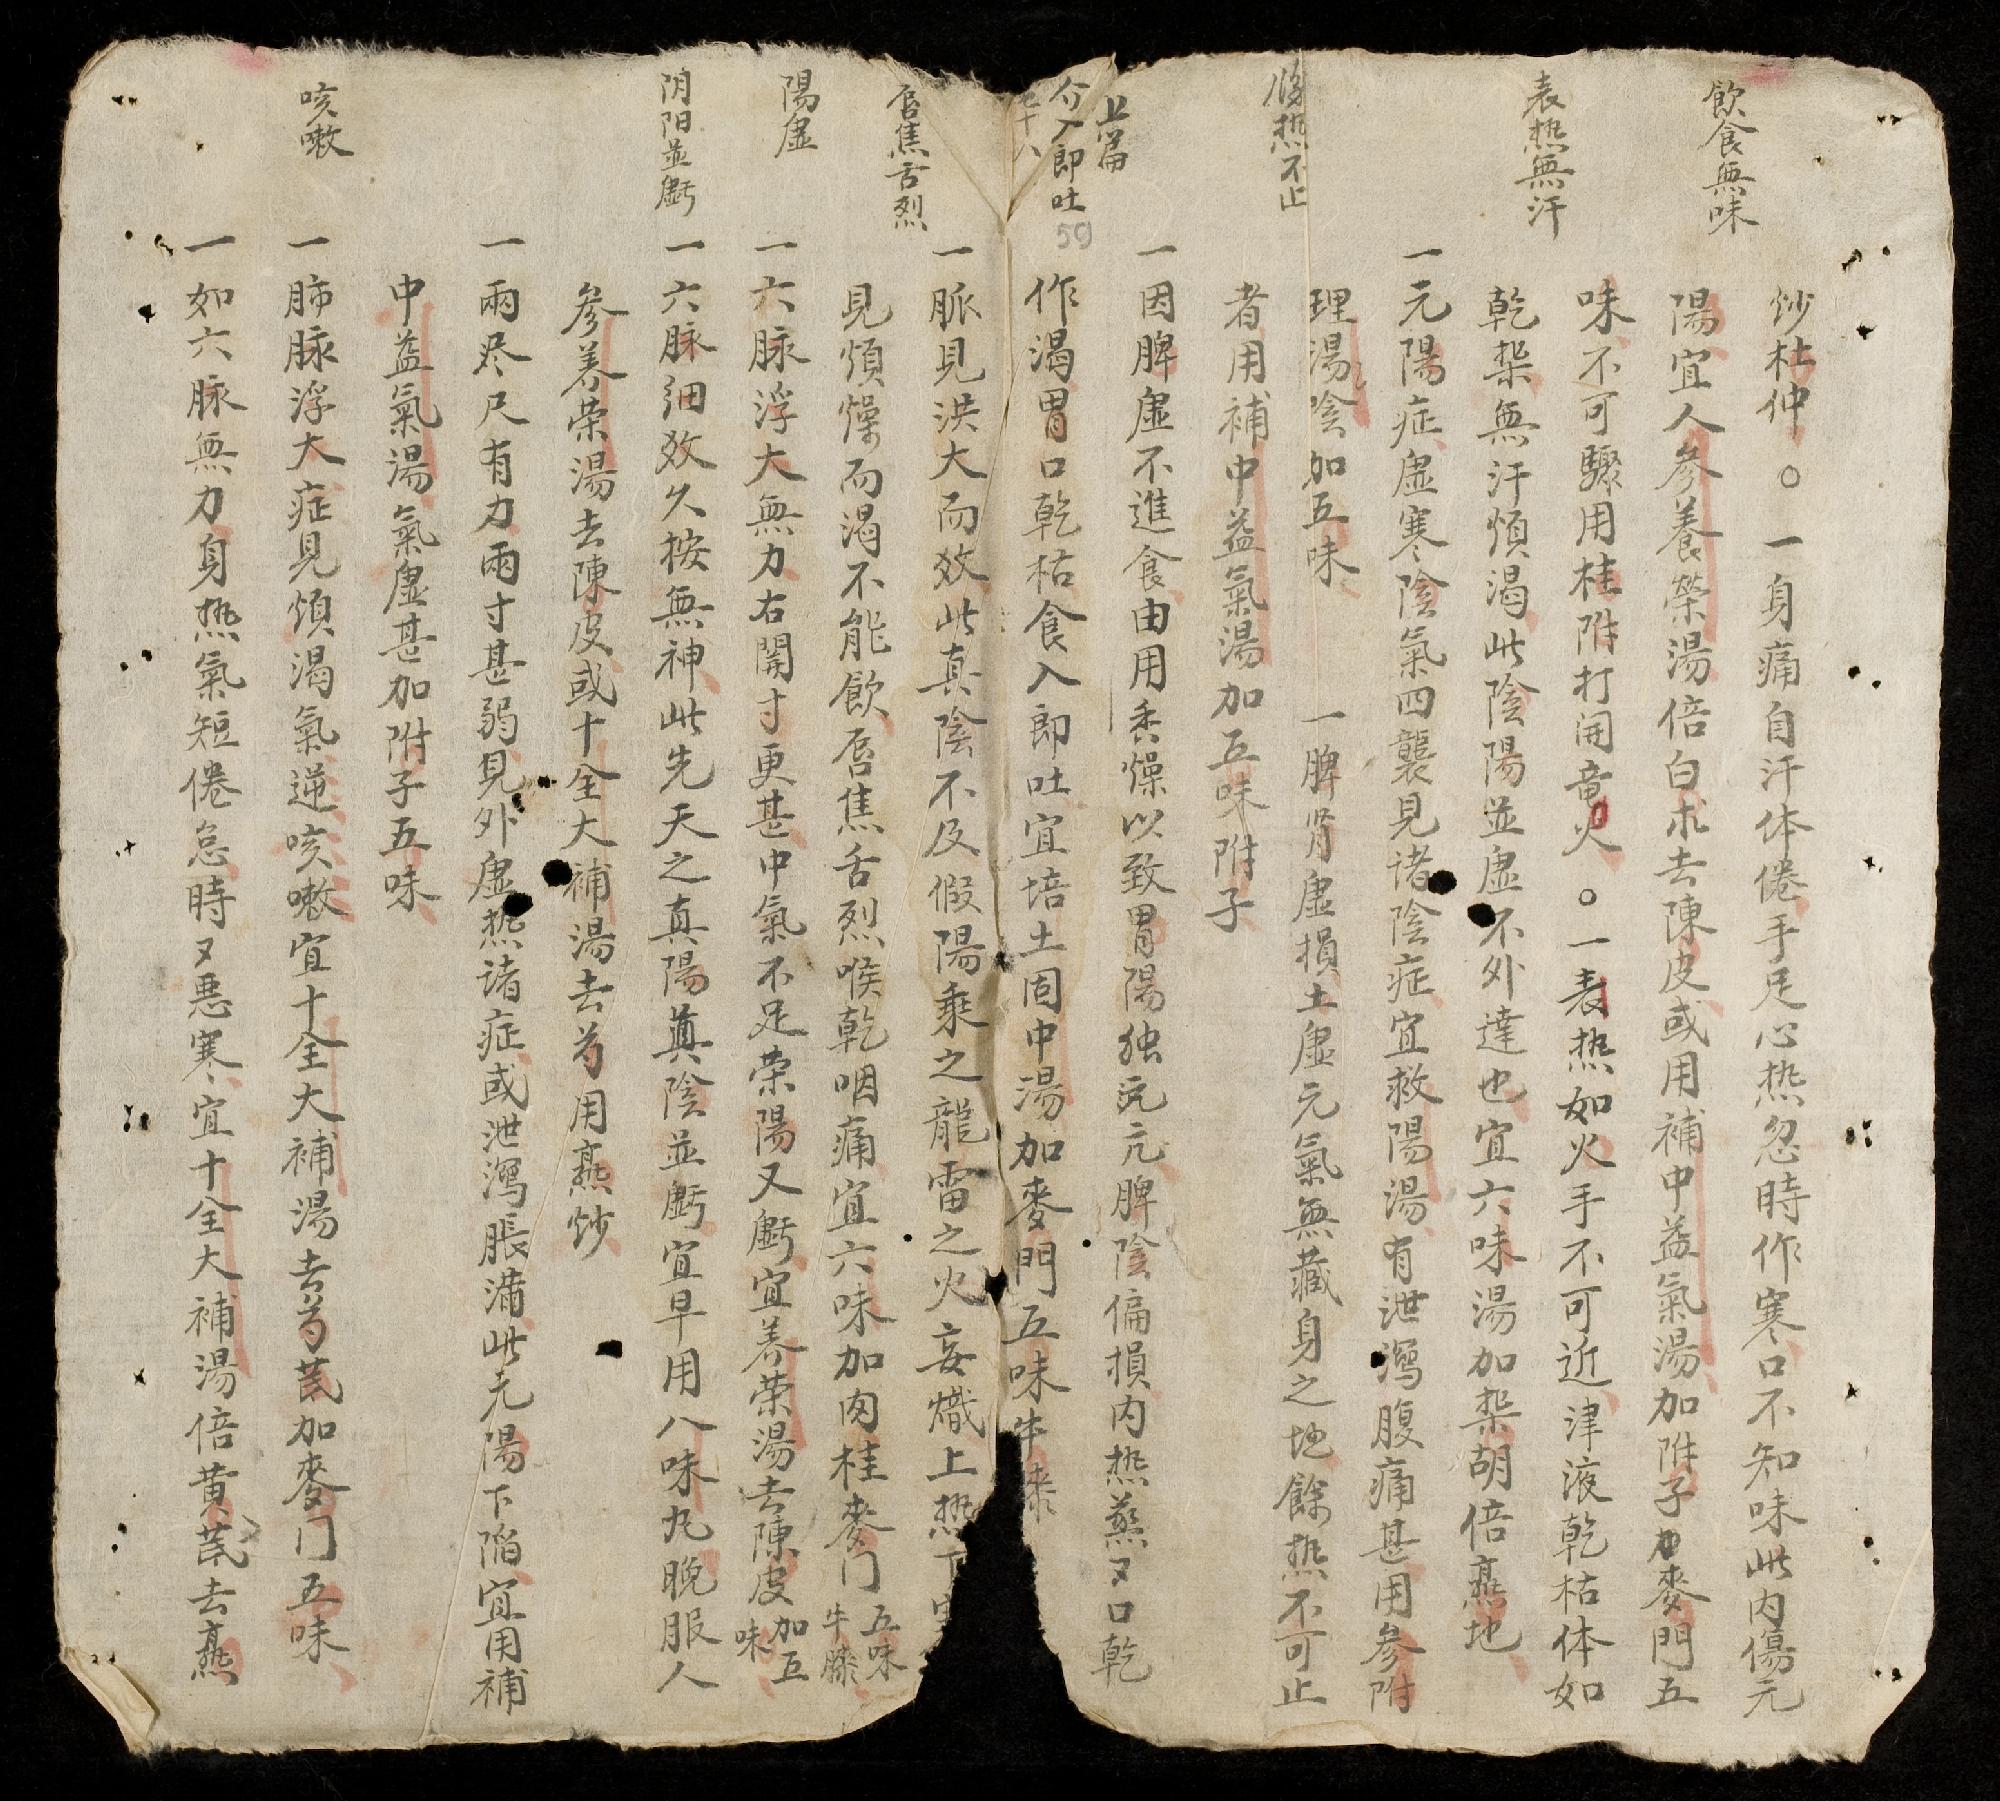 飲食無味
表热無汗
热不止
上篇
入即吐
七十八
59
唇焦舌烈
陽虛
阴阳並虧
咳嗽
炒杜仲○一身痛自汗体倦手足心热忽時作寒口不知味此内傷元
陽宜人參養榮湯倍白朮去陳皮或用補中益氣湯加附子麥門五
味不可驟用桂附打開竜火○一表热如火手不可近津液乾枯体如
乾柴無汗煩渴此陰陽並虛不外達也宜六味湯加柴胡倍熟地
一元陽症虛寒陰氣四襲見诸陰症宜救陽湯有泄瀉腹痛甚用參附
理湯陰加五味 一脾肾虛損土虛元氣無藏身之地餘热不可止
者用補中益氣湯加五味附子
一因脾虛不進食由用香燥以致胃陽独亢脾陰偏損内热蒸又口乾
作渴胃口乾枯食入即吐宜培土固中湯加麥門五味牛
一脈見洪大而效此真陰不及假陽乘之龍雷之火妄熾上热下
見煩燥而渴不能飲唇焦舌烈喉乾咽痛宜六味加肉桂麥门五味牛膝
一六脉浮大無力右關寸更甚中氣不足榮陽又虧宜养荣湯去陳皮加五味
一六脉细效久按無神此先天之真陽真陰並虧宜早用八味丸晚服人
參养荣湯去陳皮或十全大補湯去芍用熟炒
一兩尽尺有力兩寸甚弱見外虛热诸症或泄瀉脹滿此元陽下陷宜用補
中益氣湯氣虛甚加附子五味
一肺脉浮大症見煩渴氣逆咳嗽宜十全大補湯去芎芪加麥门五味
一如六脉無力身热氣短倦怠時又悪寒宜十全大補湯倍黄芪去熟